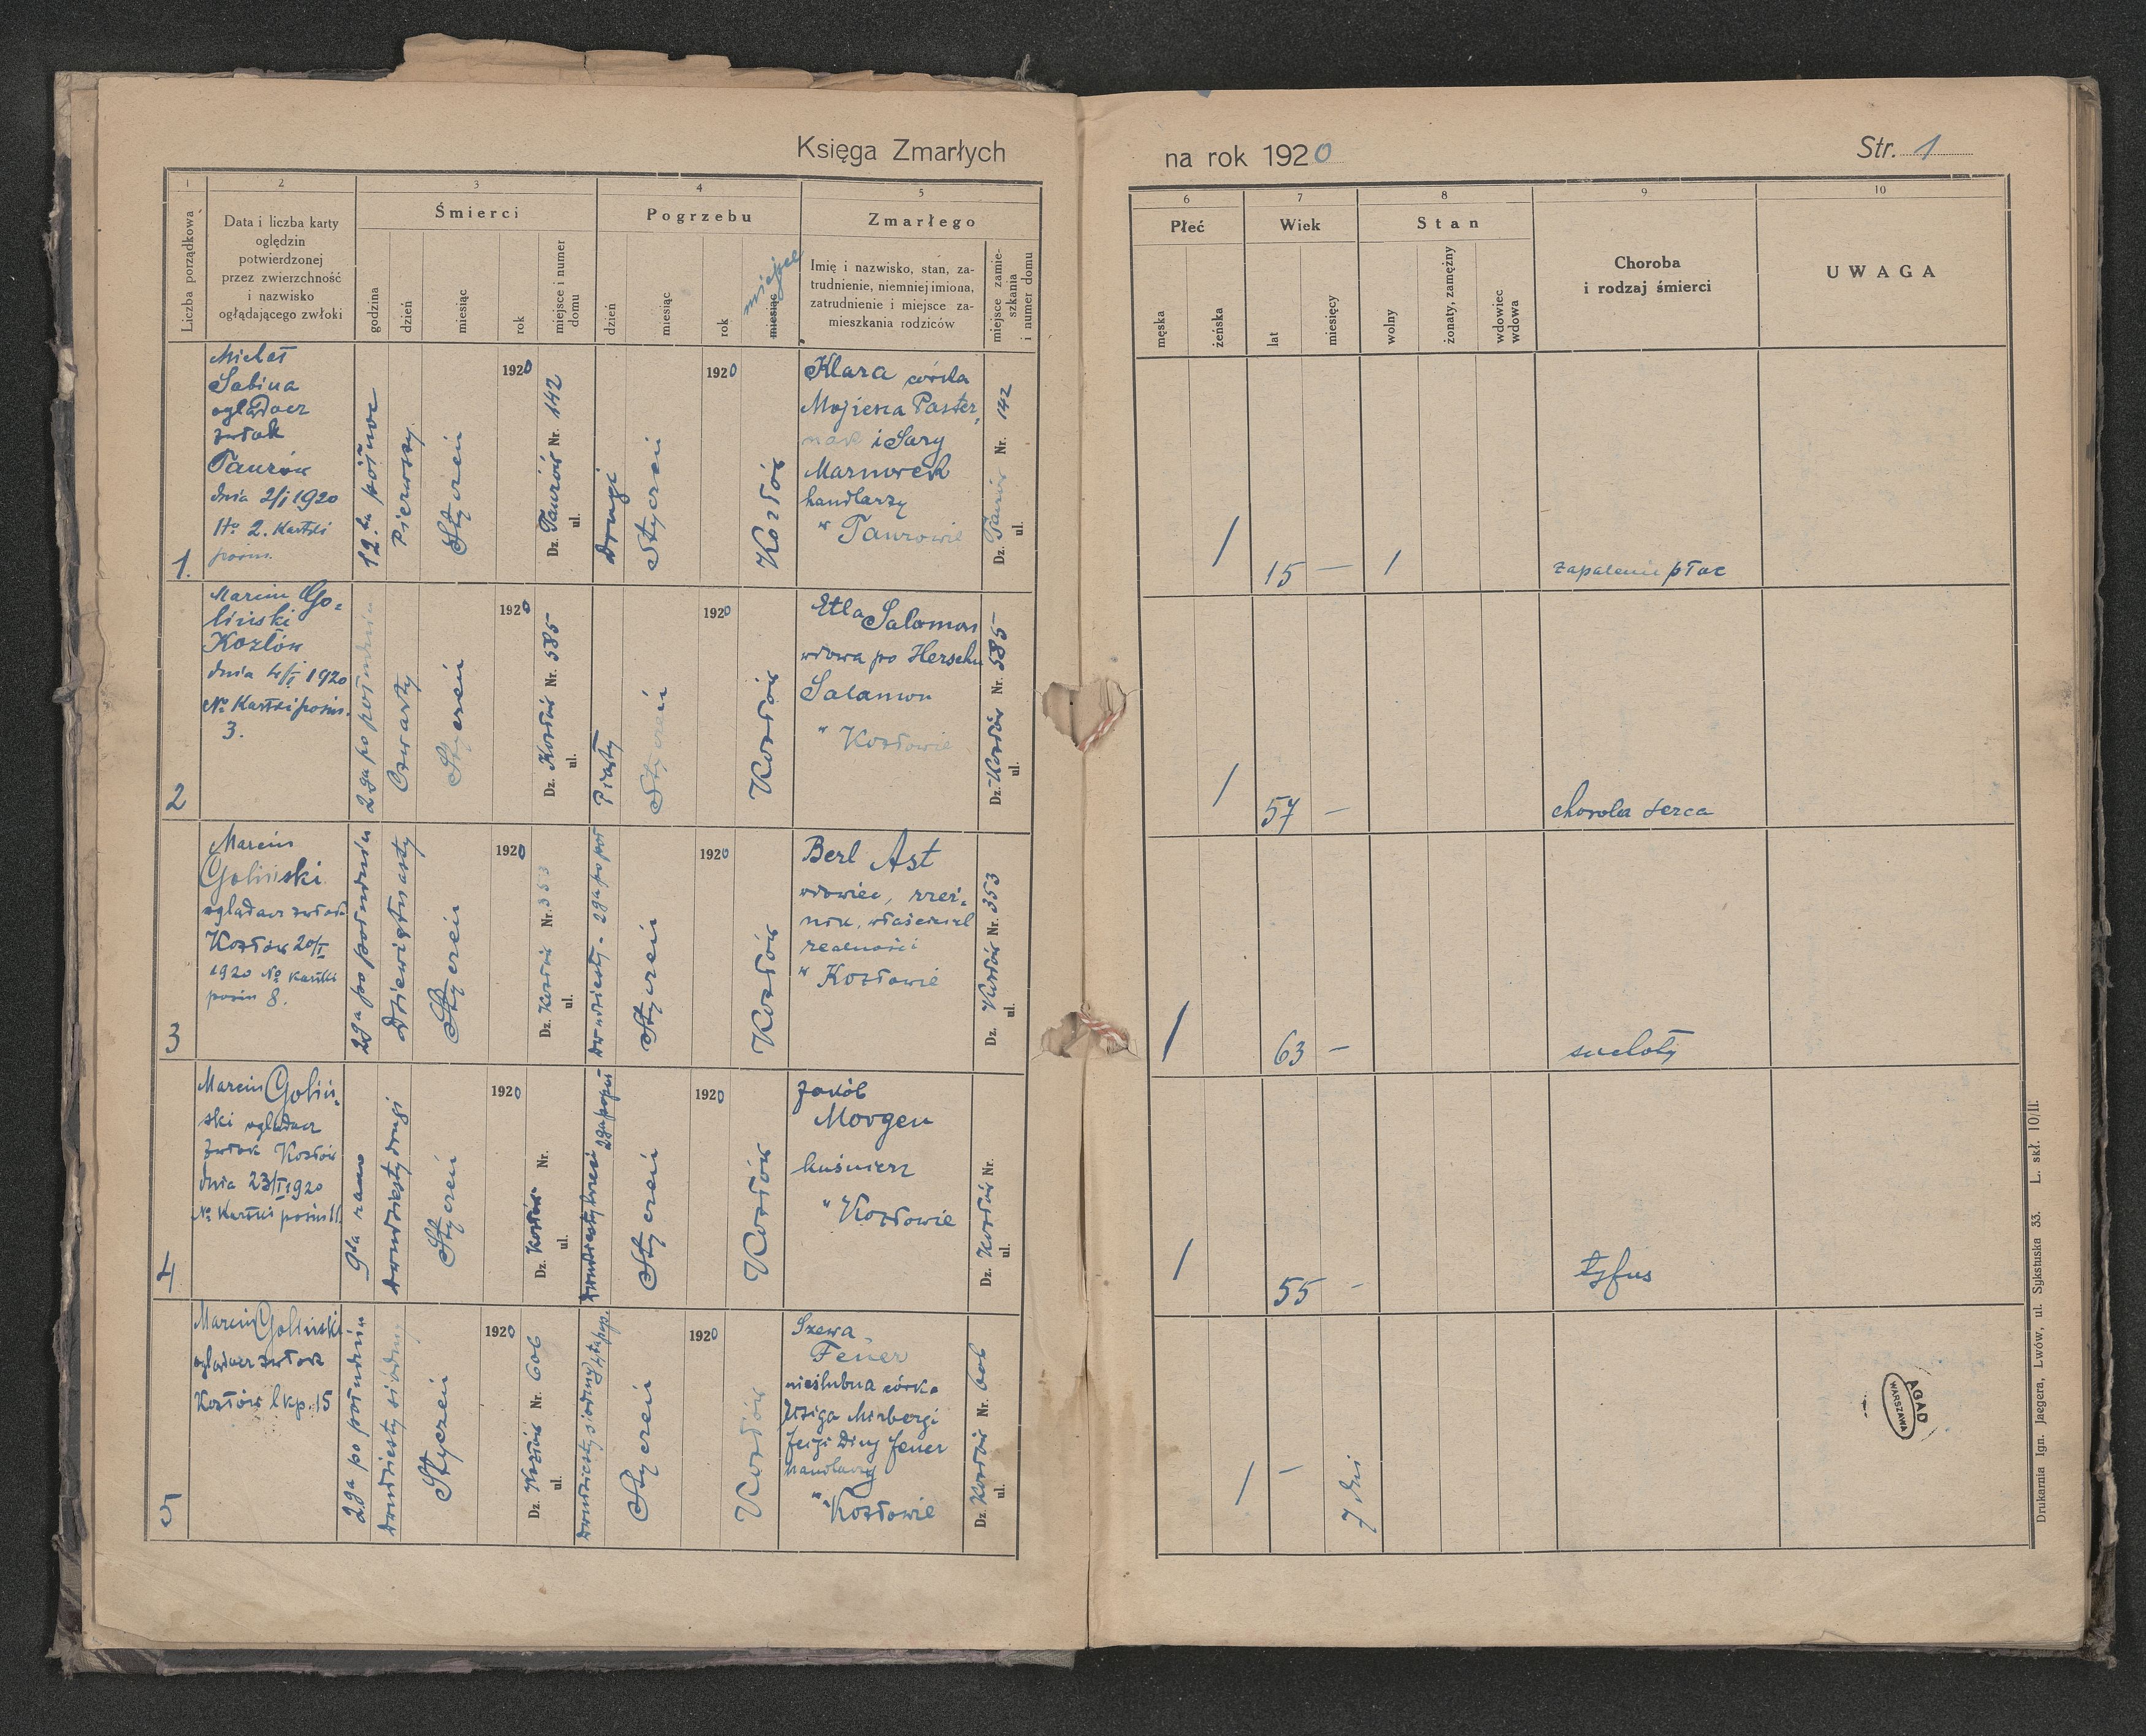 Księga Zmarłych
na rok 1920
Str. 1
1
2
3
4
5
6
7
8
9
10
Liczba porządkowa
Data i liczba karty
oględzin
potwierdzonej
przez zwierzchność
i nazwisko
oglądającego zwłoki
Śmierci
godzina
dzień
miesiąc
rok
miejsce i numer
domu
Pogrzebu
dzień
miesiąc
rok
miesiąc
miejsce
Zmarłego
Imię i nazwisko, stan, za-
trudnienie, niemniej imiona,
zatrudnienie i miejsce za-
mieszkania rodziców
miejsce zamie-
szkania
i numer domu
Płeć
męska
żeńska
Wiek
lat
miesięcy
Stan
wolny
żonaty, zamężny
wdowiec
wdowa
Choroba
i rodzaj śmierci
UWAGA
1.
Sabina
oglądacz
zwłok
Taurów
dnia 2/I 1920
No 2. Kartki
pośm.
12.ta północ
Pierwszy
Styczeń
1920
Dz. Taurów Nr. 142
ul.
drugi
Styczeń
1920
Kozłów
Klara córka
Mojżesza Paster
nak i Sary
handlarzy
w Taurowie
Dz. Taurów Nr. 142
ul.
/
15
—
/
zapalenie płuc
2
Marcin Go-
liński
Kozłów
dnia 4/I 1920
No Kartki pośm.
3.
2ga po południu
Czwarty
Styczeń
1920
Dz. Kozłów Nr. 585
ul.
Piąty
Styczeń
1920
Kozłów
Etla Salamon
wdowa po Herschu
Salamon
w Kozłowie
Dz. Kozłów Nr. 585
ul.
/
57
—
choroba serca
3
Marcin
Goliński
oglądacz zwłok
Kozłów 20/I
1920 No kartki
pośm 8.
2ga po południu
dziewiętnasty
Styczeń
1920
Dz. Kozłów Nr. 353
ul.
dwudziesty - 2ga po poł
Styczeń
1920
Kozłów
Berl Ast
wdowiec, rzeź-
nik, właściciel
realności
w Kozłowie
Dz. Kozłów Nr. 353
ul.
/
63
—
suchoty
4
Marcin Goliń-
ski oglądacz
zwłok Kozłów
dnia 23/I 1920
No Kartki pośm 11.
9ta rano
dwudziesty drugi
Styczeń
1920
Dz. Kozłów Nr.
ul.
dwudziesty trzeci
2ga popoł
Styczeń
1920
Kozłów
Jakób
Morgen
kuśnierz
w Kozłowie
Dz. Kozłów Nr.
ul.
/
55
-
tyfus
5
Marcin Goliński
oglądacz zwłok
Kozłów lkp. 15
2ga po południu
dwudziesty siódmy
Styczeń
1920
Dz. Kozłów Nr. 606
ul.
dwudziesty siódmy 4ta pop.
Styczeń
1920
Kozłów
Szewa
Feuer
nieślubna córka
handlarzy
w Kozłowie
Dz. Kozłów Nr. 606
ul.
/
—
7 dni
AGAD
WARSZAWA
Drukarnia Ign. Jaegera, Lwów, ul. Sykstuska 33. L. skł. 10/II.